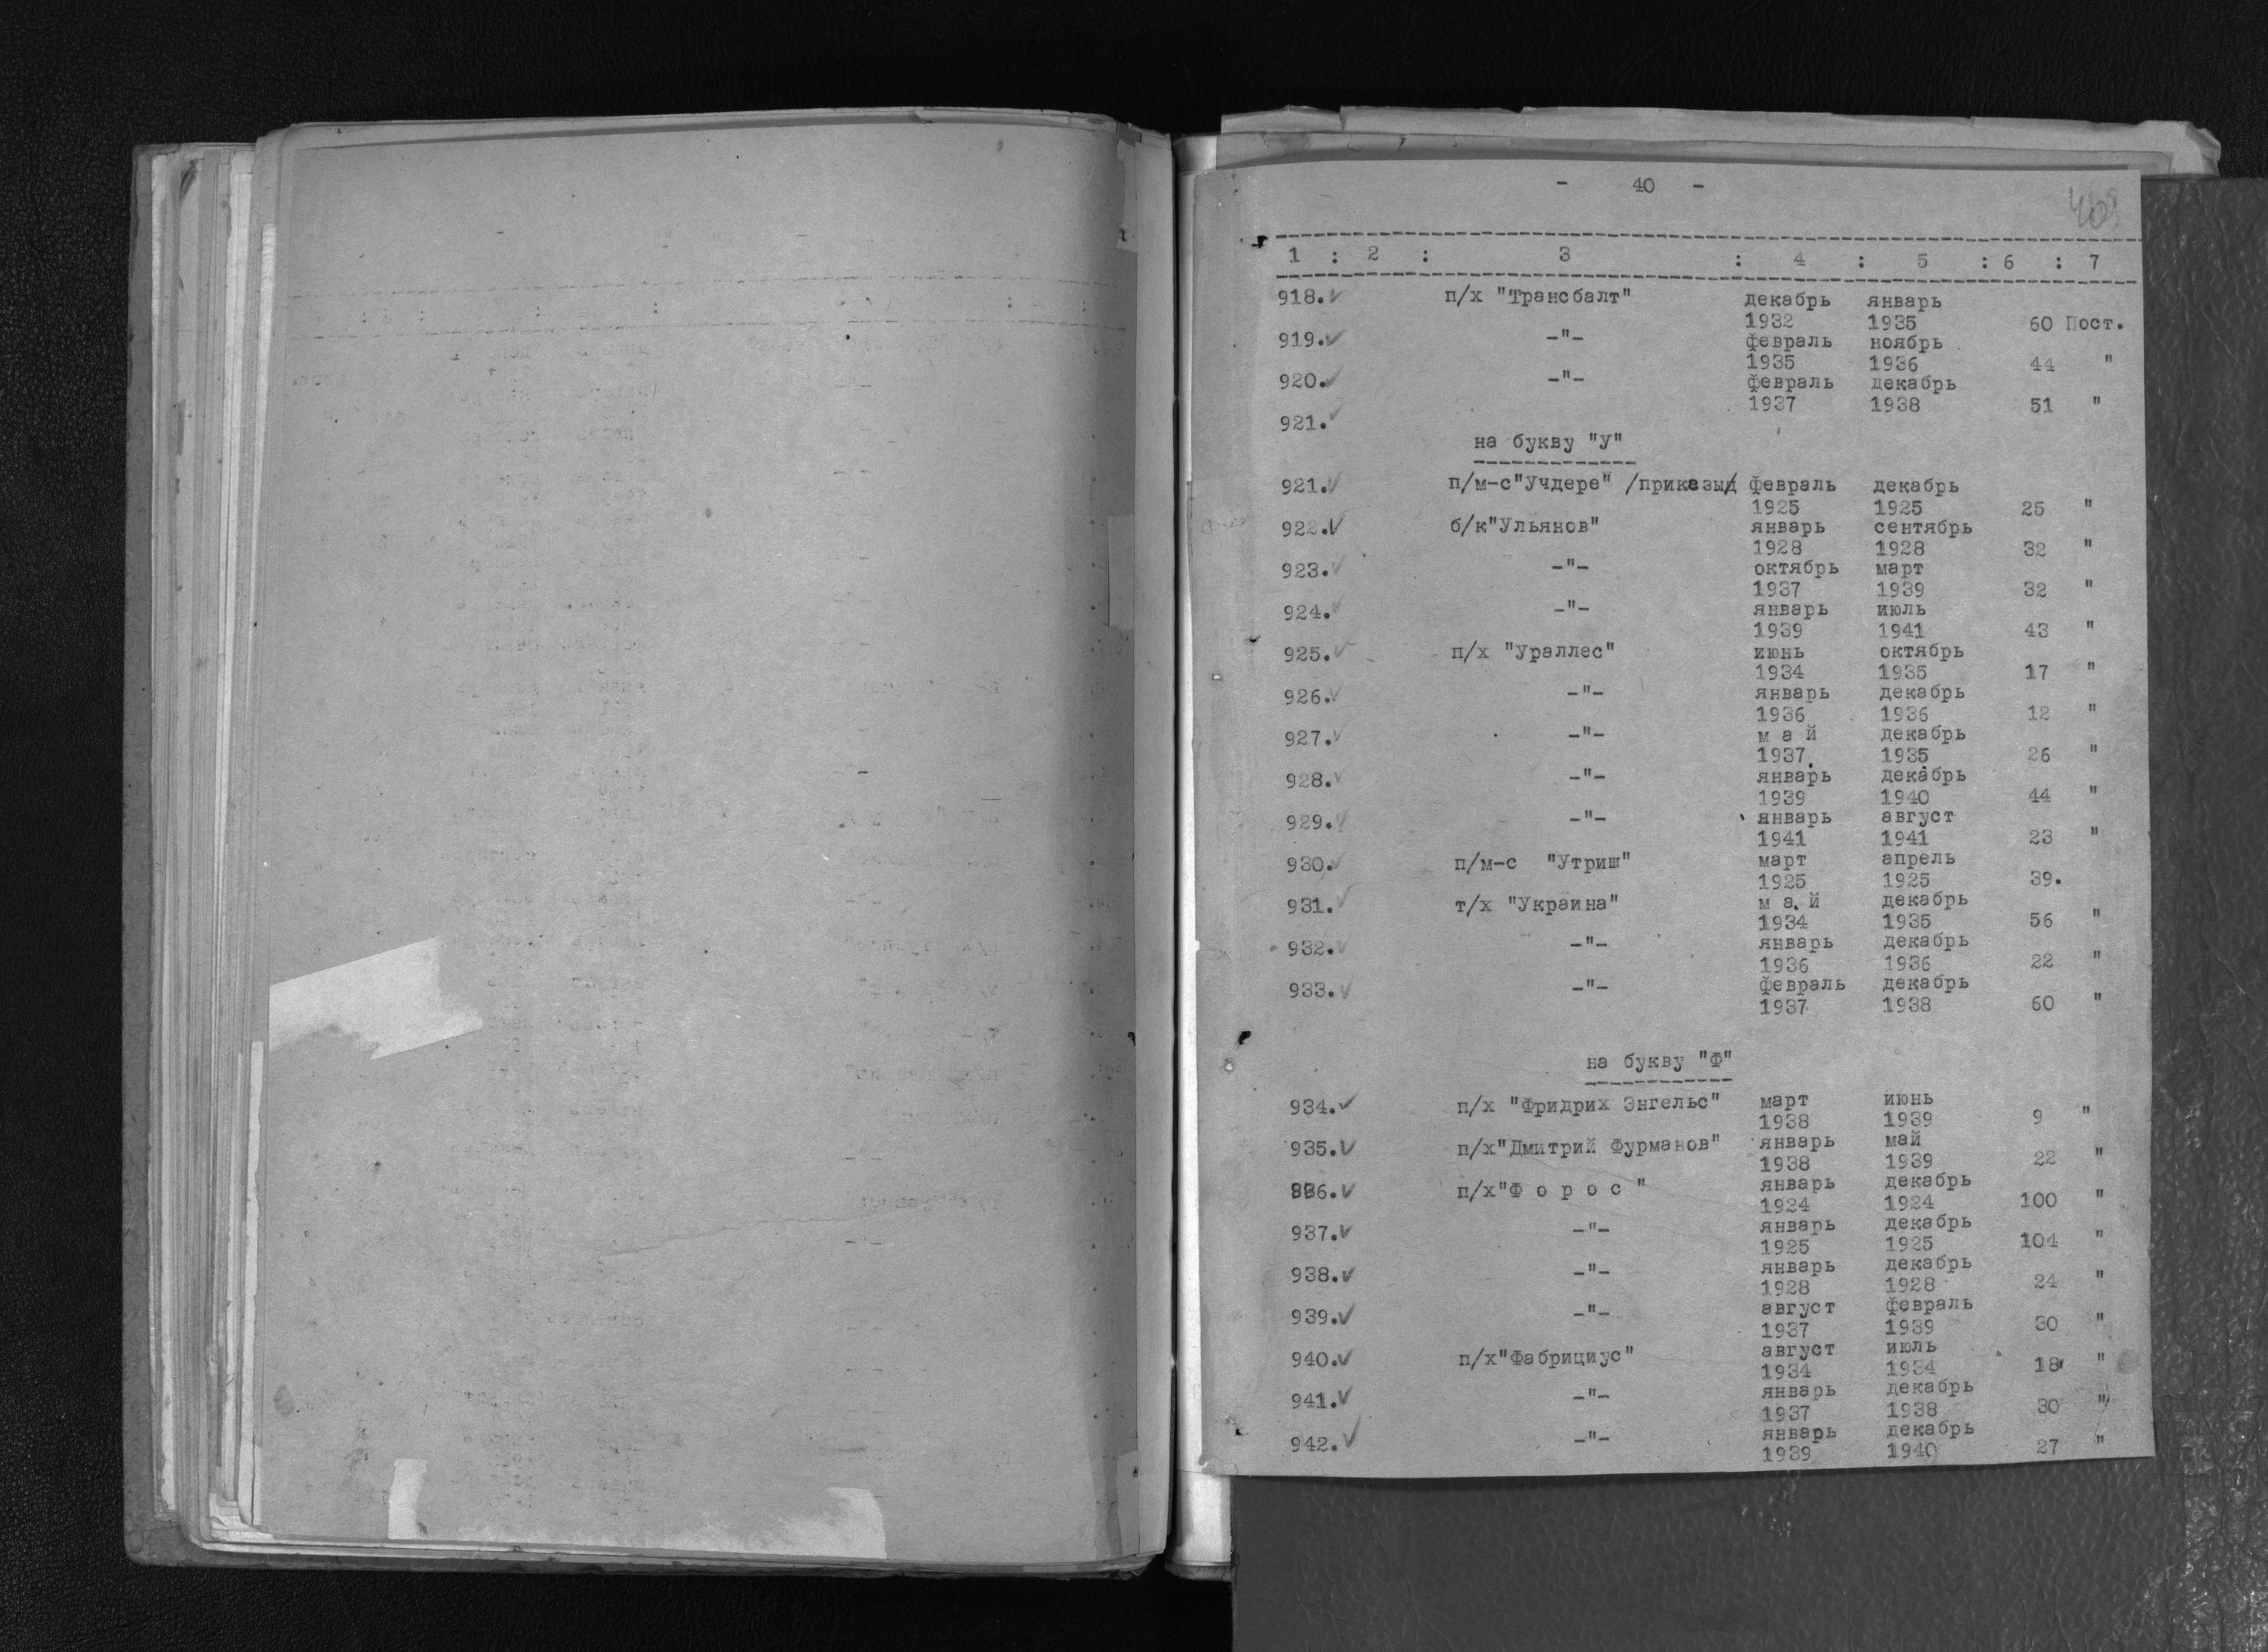 - 40 -
1 : 2 : 3 : 4 : 5 : 6 : 7
918. п/х "Трансбалт" декабрь январь
1932 1935 60 Пост.
919. -"- февраль ноябрь
1935 1936 44 "
920. -"- февраль декабрь
1937 1938 51 "
921.
на букву "У"
921. п/м-с"Учдере" /приказы/ февраль декабрь
1925 1925 25 "
922. б/к"Ульянов" январь сентябрь
1928 1928 32 "
923. -"- октябрь март
1937 1939 32 "
924. -"- январь июль
1939 1941 43 "
925. п/х "Ураллес" июнь октябрь
1934 1935 17 "
926. -"- январь декабрь
1936 1936 12 "
927. -"- м а й декабрь
1937 1935 26 "
928. -"- январь декабрь
1939 1940 44 "
929. -"- январь август
1941 1941 23 "
930. п/м-с "Утриш" март апрель
1925 1925 39.
931. т/х "Украина" м а й декабрь
1934 1935 56 "
932. -"- январь декабрь
1936 1936 22 "
933. -"- февраль декабрь
1937 1938 60 "
на букву "Ф"
934. п/х "Фридрих Энгельс" март июнь
1938 1939 9 "
935. п/х"Дмитрий Фурманов" январь май
1938 1939 22 "
936. п/х"Ф о р о с " январь декабрь
1924 1924 100 "
937. -"- январь декабрь
1925 1925 104 "
938. -"- январь декабрь
1928 1928 24 "
939. -"- август февраль
1937 1939 30 "
940. п/х"Фабрициус" август июль
1934 1934 18 "
941. -"- январь декабрь
1937 1938 30 "
942. -"- январь декабрь
1939 1940 27 "